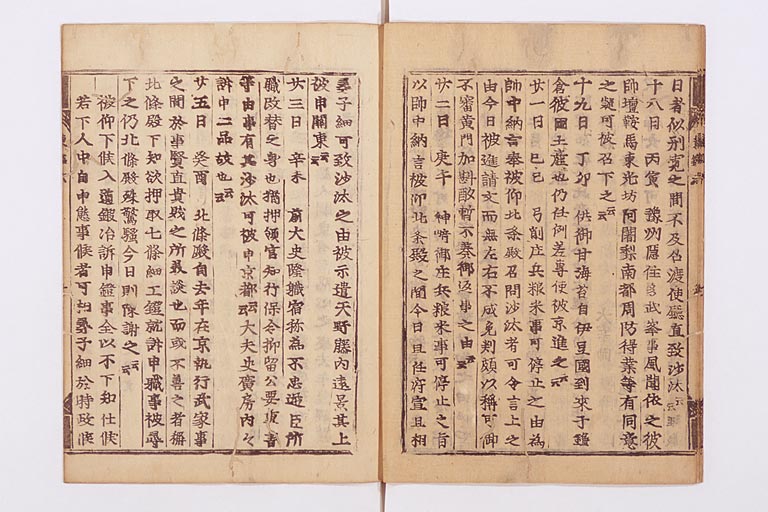 日者似刑寛之間不及召渡使廳直致沙汰云云
十八日 丙寅 豫州隱住多武峯事風聞依之彼
師壇鞍馬東光坊阿闍梨南都周防得業等有同意
之疑可被召下之云云
十九日 丁卯 供御甘海苔自伊豆國到來于鎌
倉彼國土産也仍任例差專使被京進之云云
廿一日 己巳 弓削庄兵粮米事可停止之由爲
師中納言奉被仰北条殿召問沙汰者可令言上之
由今日被進請文而無左右不成免判頗以稱可仰
不審黄門加斟酌暫不奏御返事之由云云
廿二日 庚午 神崎御庄兵粮米事可停止之旨
以師中納言被仰北条殿之間今日且任府宣且相
尋子細可致沙汰之由被示遣天野藤内遠景其上
被申關東云云
廿三日 辛未 前大史隆職宿祢爲不忠逆臣所
職改替之身也猶押領官知行保令抑留公要重書
等由事有其沙汰可被申京都云云大夫史廣房内々
訴申二品故也云云
廿五日 癸酉 北條殿自去年在京執行武家事
之間於事賢直貴賤之所美談也而或不善之者稱
北條殿下知欲押取七條細工鐙就訴申職事被尋
下之仍北條殿殊驚騒今日則陳謝之云云
被仰下候入道鍛冶訴申鐙事全以不下知仕候
若下人中自申僻事候者可相尋子細於時政候